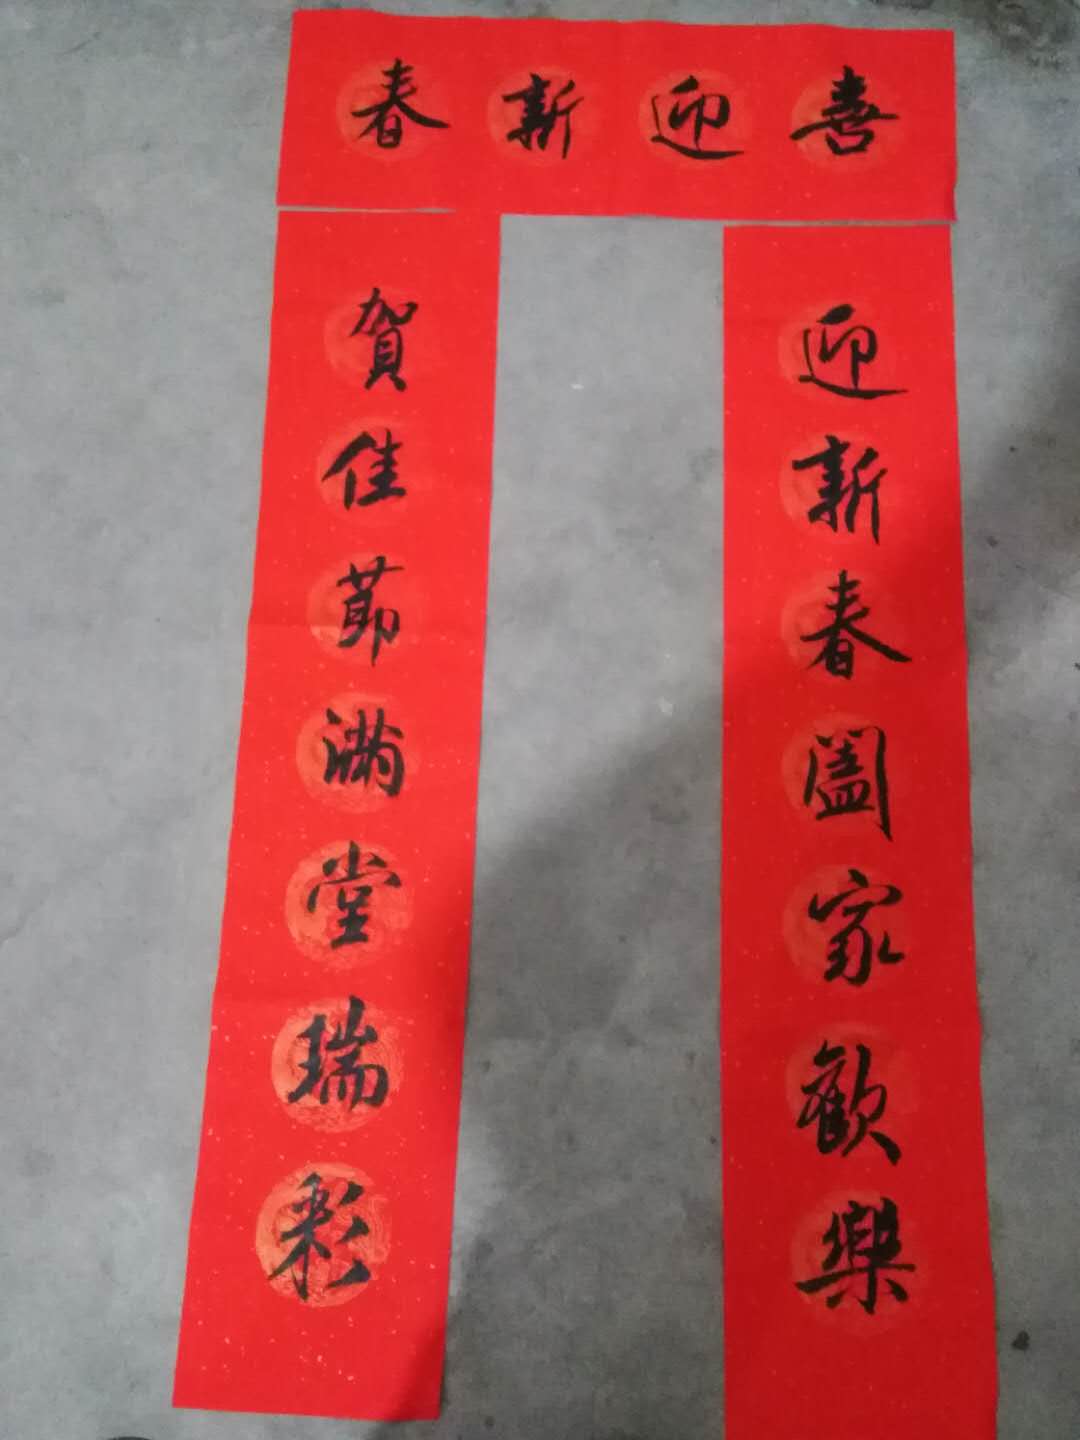 喜迎新春
迎新春阖家歡樂
賀佳節满堂瑞彩